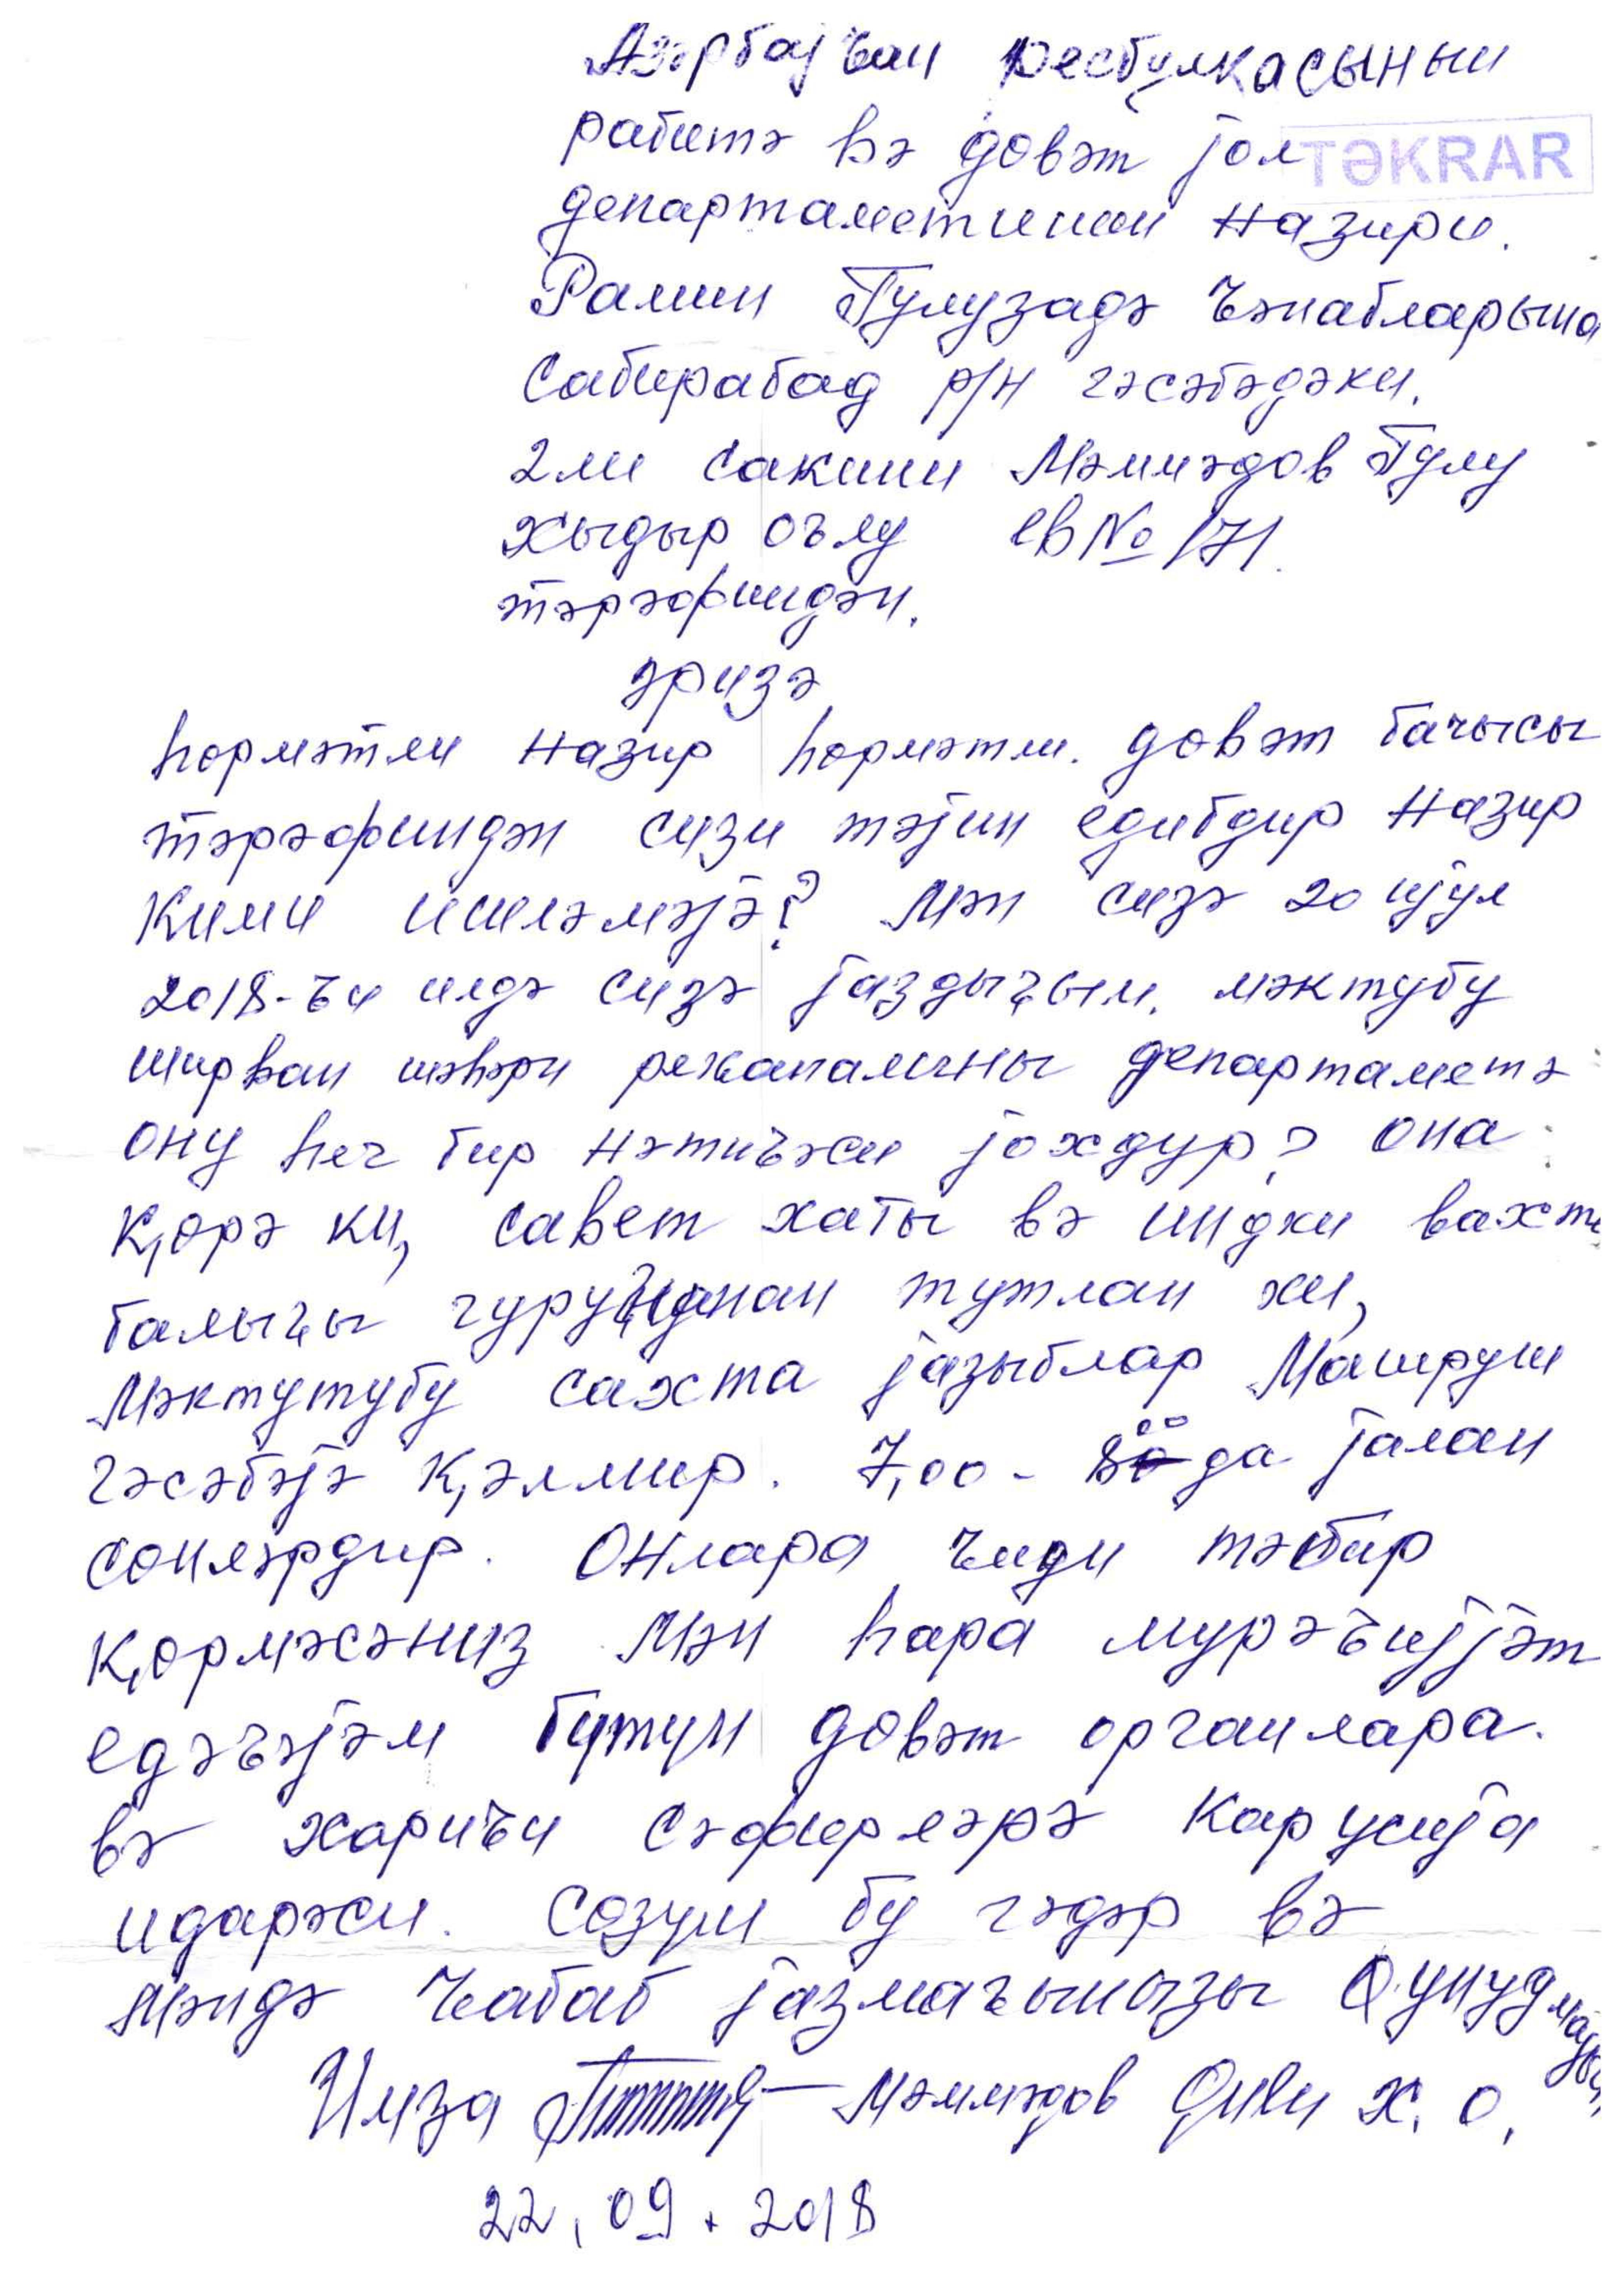 Азәрбајҹан Респулкасынын
рабитә вә довәт јол
TƏKRAR
департаметинин Назири.
Рамин Гулузадә ҹәнабларына
Сабирабад р/н гәсәбәдәки.
2ли Сакини Мәммәдов Гулу
Хыдыр оғлу ев № 171.
тәрәфиндән.
әризә
һөрмәтли Назир һөрмәтли. довәт бачысы
тәрәфиндән сизи тәјин едибдир Назир
Кими ишләмәјә? Мән сизә 20 ијул
2018-ҹи илдә сизә јаздығым. мәктубу
ширван шәһәри департаметә
ону һеч бир нәтиҹәси јохдур? Она
ҝөрә ки, савет хаты вә индки вахт
балығы тутлан ки,
Мәктутубу сахта јазыблар Машруш
гәсәбәјә ҝәлмир. 7,00 - 8 00 да јалан
Онлара ҹиди тәбир
ҝөрмәсәниз Мән һара мурәҹијјәт
едәҹәјәм бүтүн довәт органлара.
вә хариҹи сәфирләрә
идарәси. Сөзүм бу гәдәр вә
Мәндә ҹабаб јазмағынызы унудмајын
Имза Мәммәдов Х. О.
22.09.2018